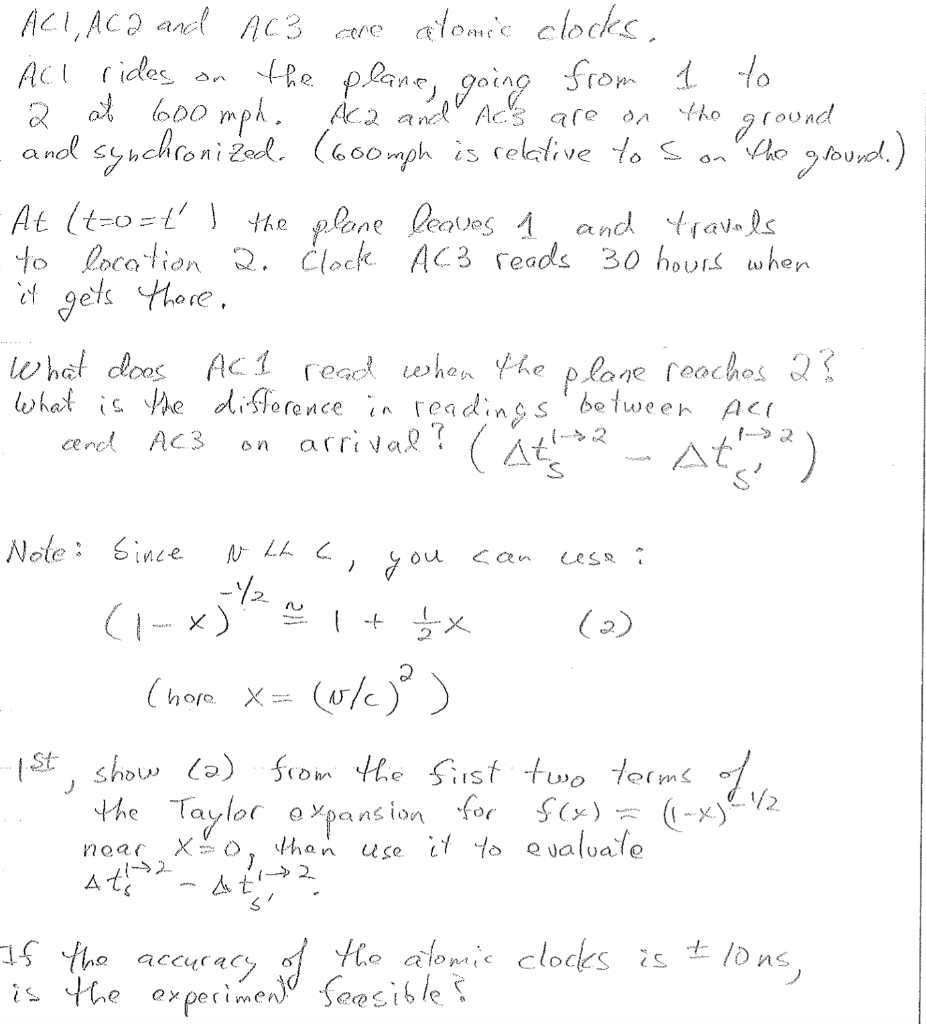 AC1, AC2 and AC3 are atomic clocks.
AC1 rides on the plane, going from 1 to
2 at 600 mph. AC2 and AC3 are on the ground
and synchronized. (600mph is relative to S on the ground.)
At (t=0=t') the plane leaves 1 and travels
to location 2. Clock AC3 reads 30 hours when
it gets there.
What does AC1 read when the plane reaches 2?
What is the difference in readings between AC1
and AC3 on arrival? (Δt_S^{1→2} - Δt_{S'}^{1→2})
Note: Since v << c, you can use:
(1-x)^{-1/2} ≅ 1 + ½x (2)
(here x = (v/c)²)
1st, show (2) from the first two terms of
the Taylor expansion for f(x) = (1-x)^{-1/2}
near x=0, then use it to evaluate
Δt_S^{1→2} - Δt_{S'}^{1→2}.
If the accuracy of the atomic clocks is ± 10ns,
is the experiment feesible?